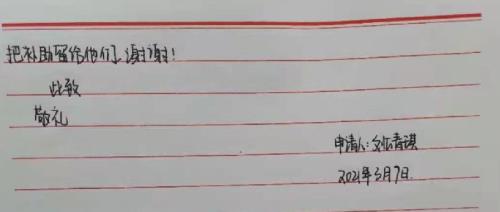 把补助留给他们,谢谢!
此致
敬礼
申请人:文
2021年3月7日.